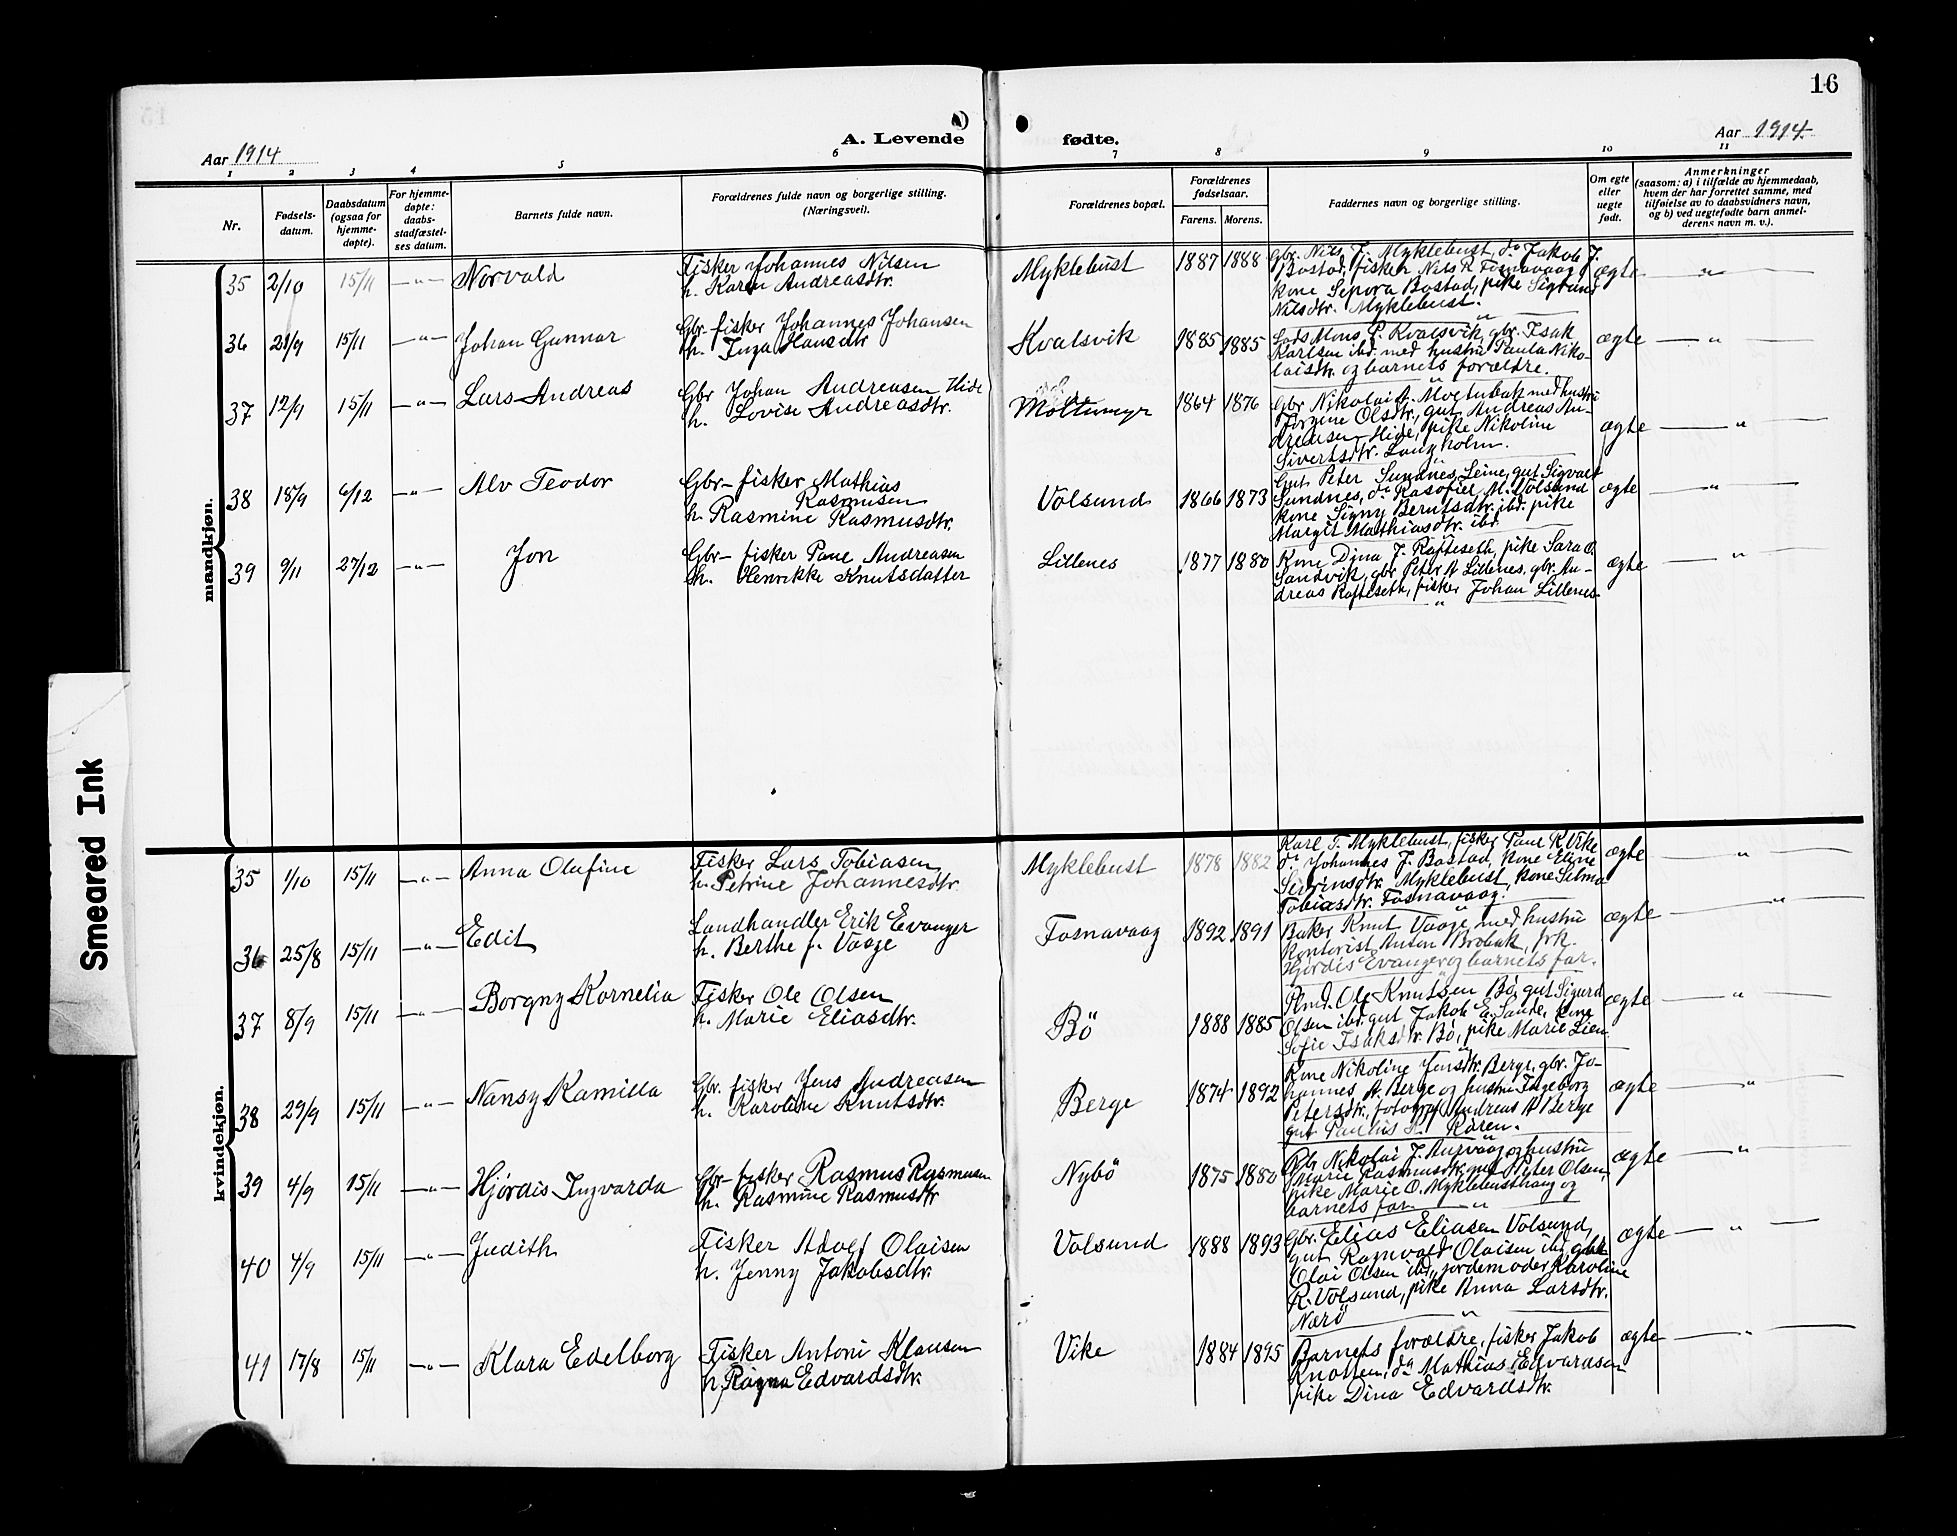 16
A. Levende fødte.
Aar 1914
Aar 1914
1 2 3 4 5 6 7 8 9 10 11
Nr.
Fødsels-
datum.
Daabsdatum
(ogsaa for
hjemme-
døpte).
For hjemme-
døpte:
daabs-
stadfæstel-
ses datum.
Barnets fulde navn.
Forældrenes fulde navn og borgerlige stilling.
(Næringsvei).
Forældrenes bopæl.
Forældrenes
fødselsaar.
Farens. Morens.
Faddernes navn og borgerlige stilling.
Om egte
eller
uegte
født.
Anmerkninger
(saasom: a) i tilfælde av hjemmedaab,
hvem der har forrettet samme, med
tilføielse av to daabsvidners navn,
og b) ved uegtefødte barn anmel-
derens navn m. v.).
mandkjøn.
35 2/10 15/11 —„— Norvald
Fisker Johannes Nilsen
h. Karen Andreasdtr.
Myklebust 1887 1888
Gbr. Nils J. Myklebust, do Jakob J.
Bostad, fisker Nils R. Fosnavaag
kone Sepora Bostad, pike Sigrun
Nilsdtr. Myklebust.
ægte —„—
36 21/9 15/11 —„— Johan Gunnar
Gbr. fisker Johannes Johansen
h. Inga Hansdtr
Kvalsvik 1885 1885
Lods Mons P. Kvalsvik, gbr. Isak
Karlsen ibd. med hustru Paula Niko-
laisdtr. og barnets forældre.
ægte —„—
37 12/9 15/11 —„— Lars Andreas
Gbr Johan Andreasen Hide
h. Lovise Andreasdtr.
Moltumyr 1864 1876
Gbr Nikolai A. Mogtubak med hustru
Jorgine Olsdtr., gut Andreas An-
dreasen Hide, pike Nikoline
Sivertsdtr. Langholm.
ægte —„—
38 18/9 6/12 —„— Alv Teodor
Gbr– fisker Mathias
Rasmusen
h. Rasmine Rasmusdtr.
Volsund 1866 1873
Gut Peter Sundnes, Leine, gut Sigvalt
Sundnes, do Rasofiel M. Volsund
kone Signy Berntsdtr. ibd. pike
Margit Mathiasdtr. ibd.
ægte —„—
39 9/11 27/12 —„— Jon
Gbr– fisker Paul Andreasen
h. Henrikke Knutsdatter
Lillenes 1877 1880
Kone Dina J. Rafteseth, pike Sara O.
Sandvik, gbr. Peter A Lillenes, gbr. An-
dreas Rafteseth, fisker Johan Lillenes
ægte —„—
kvindekjøn.
35 1/10 15/11 —„— Anna Olafine
Fisker Lars Tobiasen
h. Petrine Johannesdtr.
Myklebust 1878 1882
Karl T. Myklebust, fisker Paul K Vike
do Johannes J. Bostad, kone Eline
Severinsdtr. Myklebust, kone Selma
Tobiasdtr. Fosnavaag.
ægte —„—
36 25/8 15/11 —„— Edit
Landhandler Erik Evanger
h. Berthe f. Vaage
Fosnavaag 1892 1891
Baker Knut Vaage med hustru
Kontorist Anton Brobak, frk.
Hjördis Evanger og barnets far.
ægte —„—
37 8/9 15/11 —„— Borgny Kornelia
Fisker Ole Olsen
h. Marie Eliasdtr.
Bö 1888 1885
Plmd. Ole Knutsen Bö, gut Sigurd
Olsen ibd. gut Jakob E. Sande, kone
Sofie Isaksdtr. Bö, pike Marie Lien
ægte —„—
38 29/9 15/11 —„— Nansy Kamilla
Gbr. fisker Jens Andreasen
h. Karoline Knutsdtr.
Berge 1874 1892
Kone Nikoline Jensdtr. Berge, gbr. Jo-
hannes A. Berge og hustru Ingeborg
Petersdtr., fotograf Andreas A Berge
gut Paulus P. Kören.
ægte —„—
39 4/9 15/11 —„— Hjördis Ingvarda
Gbr– fisker Rasmus Rasmusen
h. Rasmine Rasmusdtr
Nybö 1875 1880
Gbr Nikolai J. Aurvaag og hustru
Marie Rasmusdtr., gut Peter Olsen,
pike Marie O. Myklebusthaug og
barnets far
ægte —„—
40 4/9 15/11 —„— Judith
Fisker Adolf Olaisen
h. Jenny Jakobsdtr.
Volsund 1888 1893
Gbr. Elias Eliasen Volsund,
gut Ragnvald Olaisen ibd. gbr
Olai Olsen ibd., jordemoder Karoline
R. Volsund, pike Anna Larsdtr.
Nærö
ægte —„—
41 17/8 15/11 —„— Klara Edelborg
Fisker Antoni Klausen
h. Ragna Edvardsdtr.
Vike 1884 1895
Barnets forældre, fisker Jakob
Knotten, do Mathias Edvardsen
pike Dina Edvardsdtr.
ægte —„—
Smeared Ink